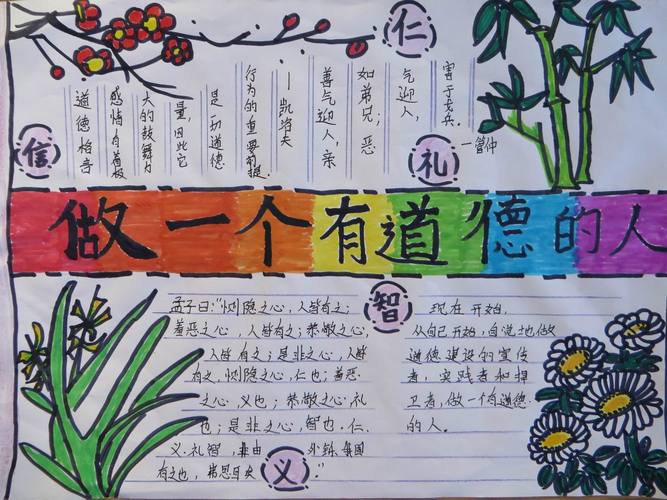 仁
信
礼
道德格言
感情有着极
大的鼓舞力
量,因此它
是一切道德
行为的重要前提.
—凯洛夫
善气迎人,亲
如弟兄;恶
气迎人,
害于戈兵.
—管仲
做一个有道德的人
智
孟子曰:"恻隐之心,人皆有之;
羞恶之心,人皆有之;恭敬之心,
人皆有之;是非之心,人皆
有之,恻隐之心,仁也;羞恶
之心,义也;恭敬之心,礼
也;是非之心,智也.仁.
义.礼智,非由外铄我
有之也,
义
现在开始,
从自己开始,自觉地做
道德建设的宣传
者,实践者和捍
卫者,做一个有道德
的人.